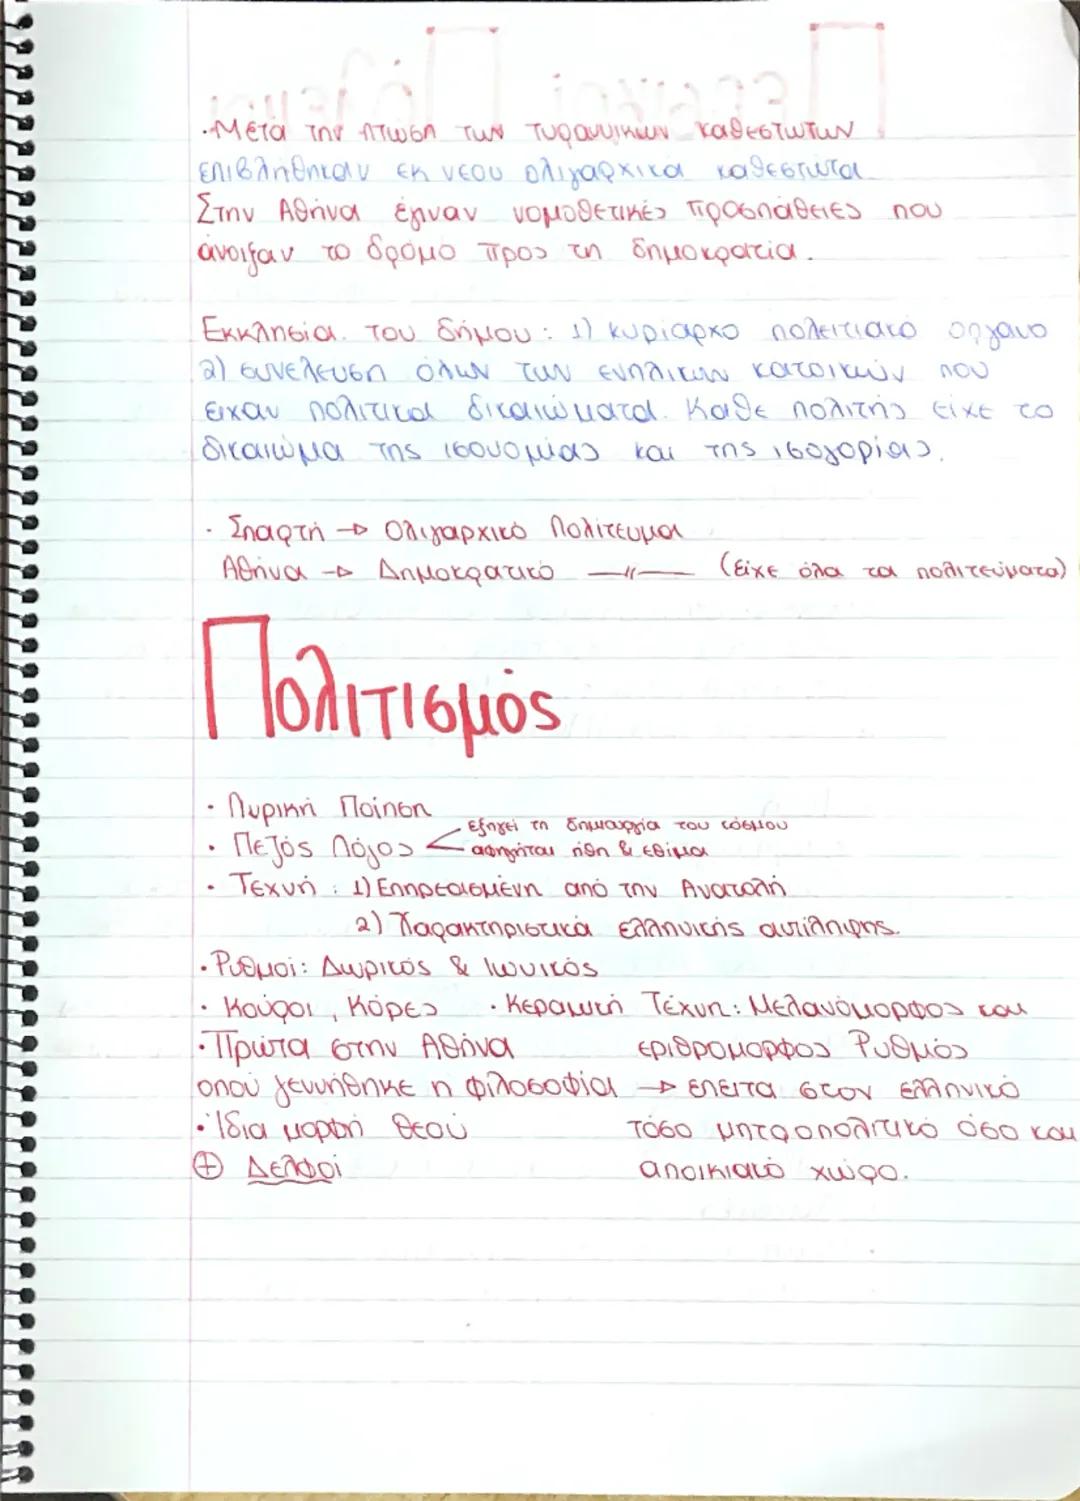 ·Μετα την πτωση των τυραννικων καθεστωτων
επιβληθηκαν εκ νεου ολιγαρχικα καθεστωτα
Στην Αθήνα έγιναν νομοθετικές προσπάθειες που
άνοιξαν το δρόμο προς τη δημοκρατία.
Εκκλησία του δήμου: 1) κυρίαρχο πολιτειακό οργανο
2) συνέλευση όλων των ενηλικων κατοικων που
ειχαν πολιτικα δικαιώματα. Καθε πολιτής είχε το
δικαιωμα της ισονομίας και της ισηγορίας.
· Σπαρτη → Ολιγαρχικό Πολίτευμα
Αθήνα → Δημοκρατικό —〃— (είχε όλα τα πολιτεύματα)
Πολιτισμός
· Λυρική Ποίηση
εξηγεί τη δημιουργία του κόσμου
· Πεζός Λόγος < αφηγήται ήθη & εθιμα
· Τεχνή : 1) Επηρεασμένη από την Ανατολή
2) Χαρακτηριστικά ελληνικής αντίληψης.
· Ρυθμοί: Δωρικός & Ιωνικός
· Κούροι, Κόρες · Κεραμική Τέχνη: Μελανόμορφος και
· Πρώτα στην Αθήνα εριθρομορφος Ρυθμός
οπού γεννήθηκε η φιλοσοφία → επειτα στον ελληνικό
· Ίδια μορφή Θεού τόσο μητροπολιτικό όσο και
⊕ Δελφοί αποικιακό χωρο.